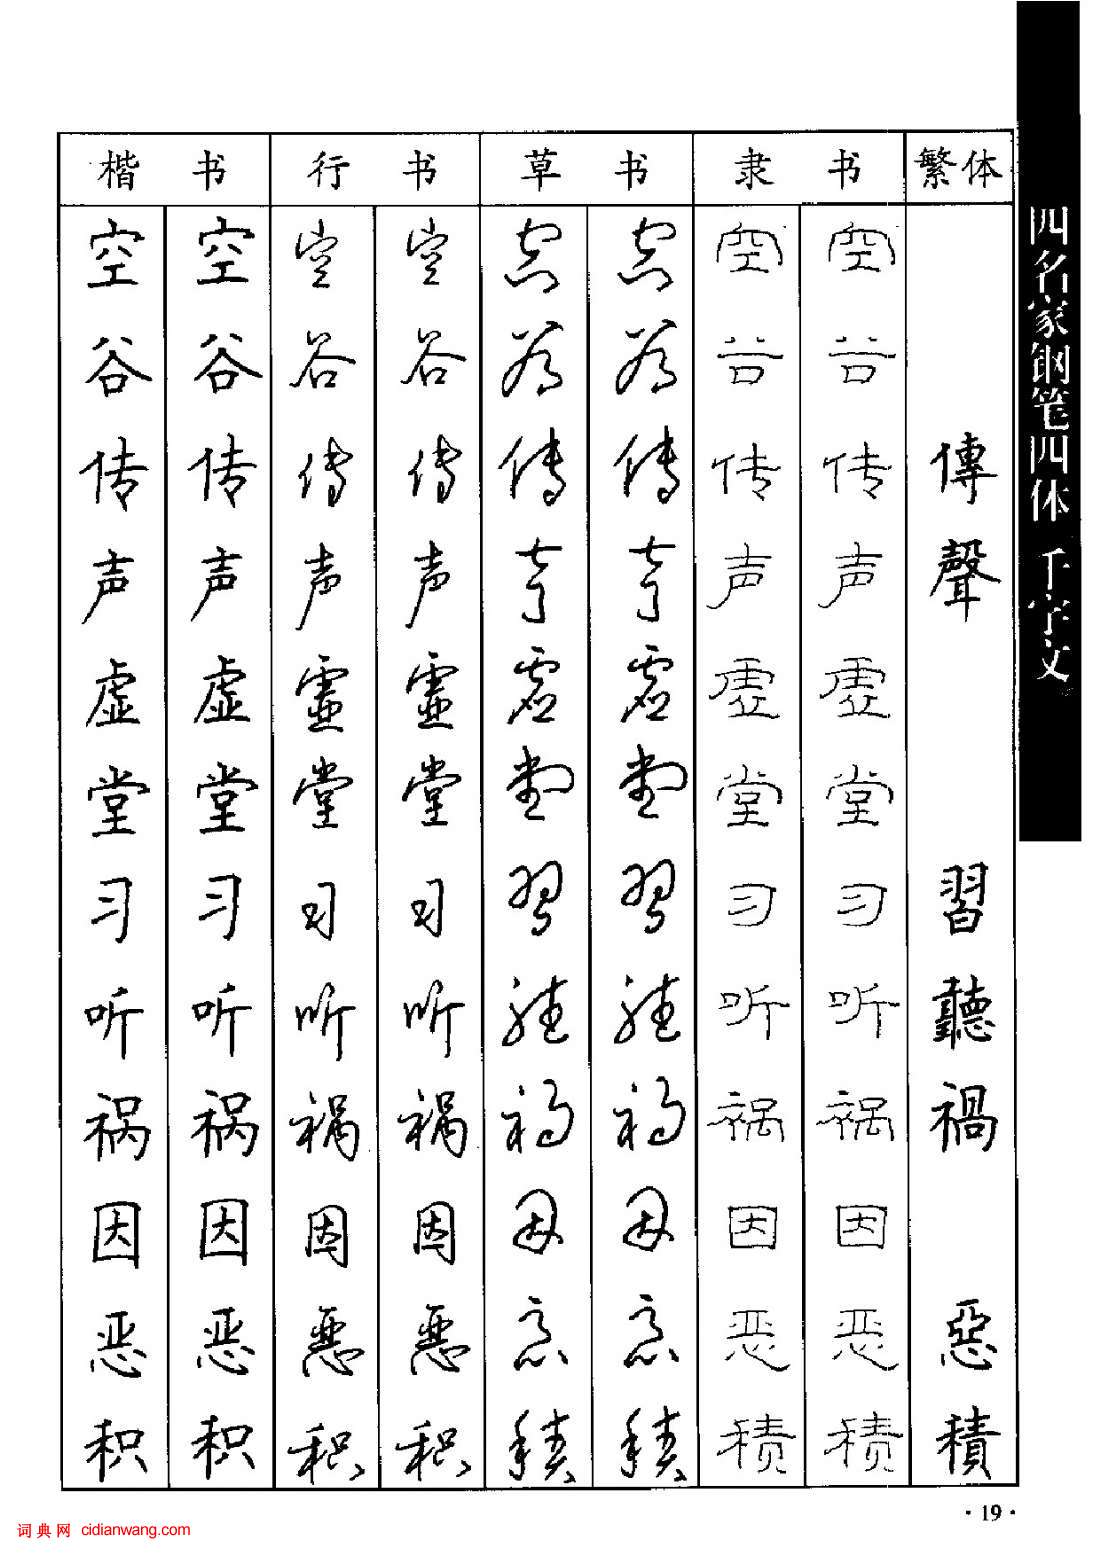 四名家钢笔四体 千字文
楷书 行书 草书 隶书 繁体
空 空 空 空 空 空 空 空
谷 谷 谷 谷 谷 谷 谷 谷
传 传 传 传 传 传 传 传 傳
声 声 声 声 声 声 声 声 聲
虚 虚 虚 虚 虚 虚 虚 虚
堂 堂 堂 堂 堂 堂 堂 堂
习 习 习 习 習 習 习 习 習
听 听 听 听 聽 聽 听 听 聽
祸 祸 禍 禍 禍 禍 祸 祸 禍
因 因 因 因 因 因 因 因
恶 恶 恶 恶 恶 恶 恶 恶 惡
积 积 积 积 積 積 積 積 積
·19·
词典网 cidianwang.com